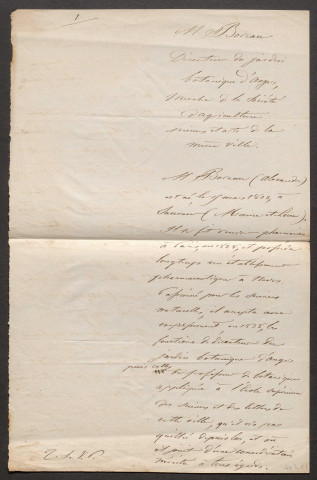 1
M. Boreau
Directeur du jardin
botanique d'Angers,
Membre de la Société
d'agriculture
sciences et arts de la
même ville.
M. Boreau (Alexandre)
est né le mars 1803, à
Saumur (Maine et Loire).
Il a été reçu pharmacien
à en 1828, et posséda
longtemps un établissement
pharmaceutique à Nevers
pour les sciences
naturelles, il accepta avec
empressement en 1838, les
fonctions de directeur du
jardin botanique d'Angers
puis celles
de professeur de botanique
appliquée à l'école supérieure
des sciences et des lettres de
cette ville, qu'il n'a pas
quittée depuis lors, et où
il jouit d'une considération
méritée à tous égards.
T. S. V. P.